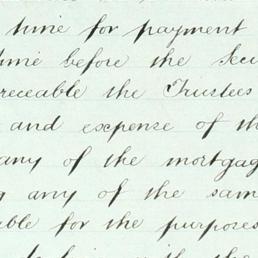 time for payment
time before the Secu
receable the Trustees
and expense of th
any of the mortgag
any of the same
able for the purposes